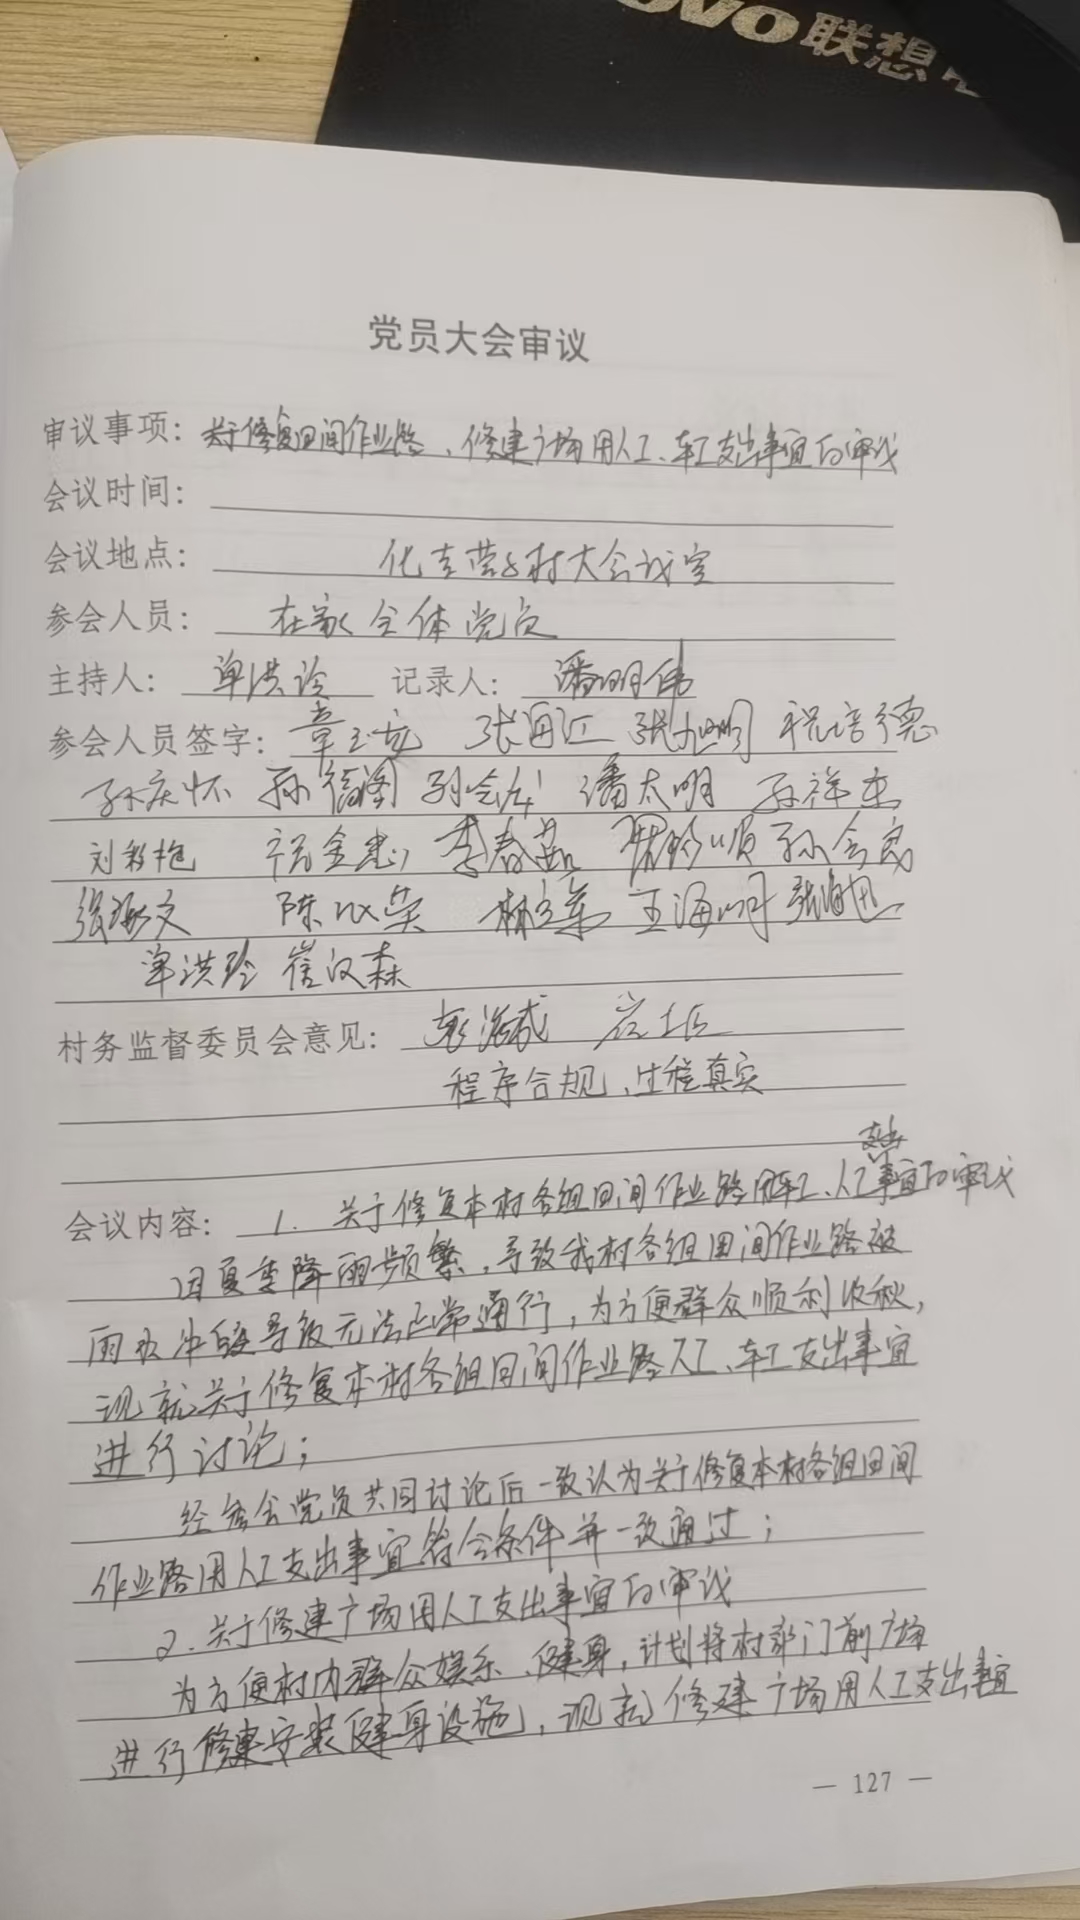 OVO联想
党员大会审议
审议事项：关于修复田间作业路、修建广场用人工、车工支出事宜的审议
会议时间：
会议地点：化吉营子村大会议室
参会人员：在家全体党员
主持人：单洪玲 记录人：潘明伟
参会人员签字：章立龙 张海江 张旭明 祝培德
孙庆怀 孙 孙会 潘太明 孙祥
刘 李春茹 顺 孙会良
张 文 陈 荣 林 王海明 张海
单洪玲 崔汉森
村务监督委员会意见：
程序合规、过程真实
支出
会议内容：1. 关于修复本村各组田间作业路用车工、人工事宜的审议
因夏季降雨频繁，导致我村各组田间作业路被
雨水冲毁导致无法正常通行，为方便群众顺利收秋，
现就关于修复本村各组田间作业路人工、车工支出事宜
进行讨论；
经参会党员共同讨论后一致认为关于修复本村各组田间
作业路用人工支出事宜符合条件并一致通过；
2. 关于修建广场用人工支出事宜的审议
为方便村内群众娱乐、健身，计划将村部门前广场
进行修建安装健身设施，现就修建广场用人工支出事宜
— 127 —